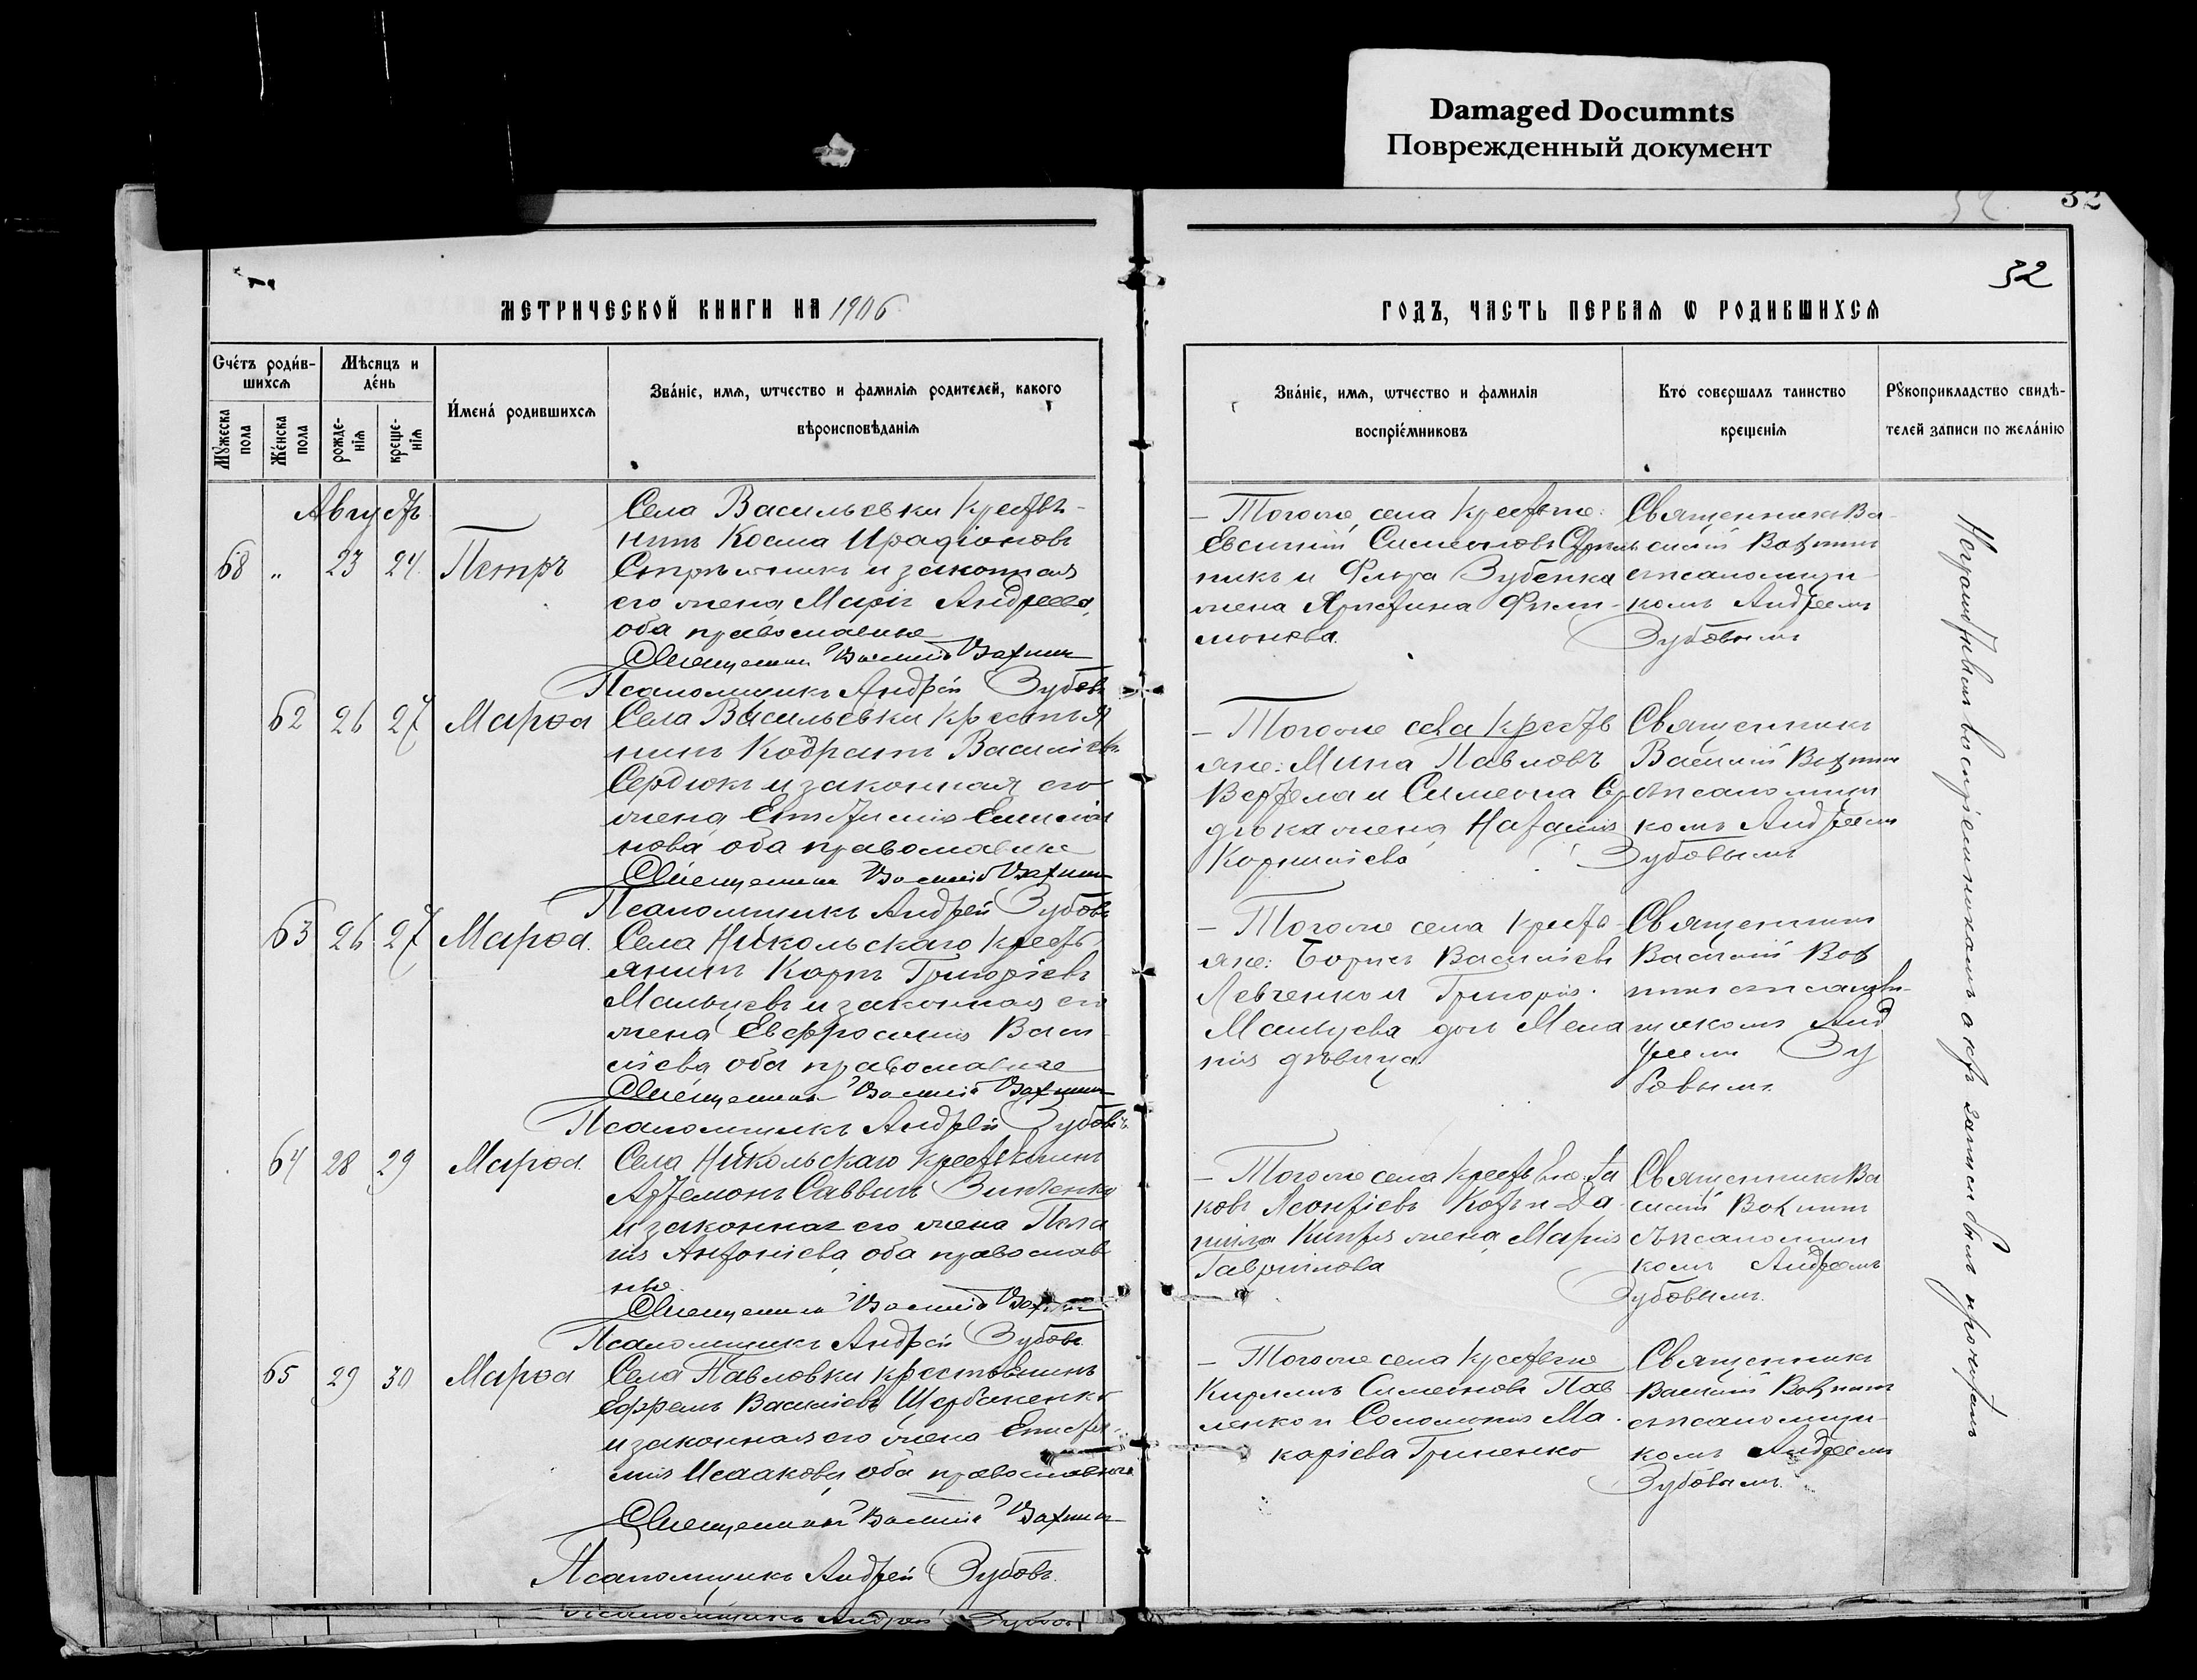 Damaged Documnts
Поврежденный документ
32
32
МЕТРИЧЕСКОЙ КНИГИ НА 1906
ГОДЪ, ЧАСТЬ ПЕРВАЯ Ѡ РОДИВШИХСЯ
Счéтъ роди́в-
шихся
Мѣсяцъ и
дéнь
Мꙋ́жеска
пола
Жéнска
пола
рожде-
нія
креще-
нія
И́мена́ родившихся
Звáніе, имя, ѡтчество и фамилія родителей, какого
вѣроисповѣданія
Звáніе, имя, ѡтчество и фамилія
воспріе́мниковъ
Кто́ совершалъ таинство
крещенія
Рꙋкоприкладство свидѣ-
телей записи по желáнію
Августъ
68 " 23 24 Петръ
Села Васильевки Крестья-
нинъ Косма Иродіоновъ
и законная
его жена Марія Андреева,
оба православные
Священникъ Василій
Псаломщикъ Андрей Зубовъ
Того же села Крестьяне:
Евсигній Симеоновъ
никъ и Зубенка
жена Христина Фили-
монова.
Священникъ Ва-
силій
съ псаломщи-
комъ Андреемъ
Зубовымъ
62 26 27 Марѳа
Села Васильевки Крестья
нинъ Кодратъ Василіевъ
Сердюкъ и законная его
жена
нова оба православные
Священникъ Василій
Псаломщикъ Андрей Зубовъ
Того же села Кресть
яне: Мина Павловъ
и Симеона Сер
дюка жена Наталія
Корниліева
Священникъ
Василій
съ псаломщи
комъ Андреемъ
Зубовымъ
63 26 27 Марѳа.
Села Никольскаго Кресть
янинъ Карпъ Григоріевъ
Мальцевъ и законная его
жена Евфросинія Васи
ліева оба православные
Священникъ Василій
Псаломщикъ Андрей Зубовъ
Того же села Кресть
яне: Борисъ Василіевъ
Левченко и Григорія
Мальцева дочь Мела
нія дѣвица
Священникъ
Василій
съ псалом
щикомъ Анд
реемъ Зу
бовымъ.
64 28 29 Марѳа
Села Никольскаго Крестьянинъ
Артемонъ Саввинъ Зинченко
и законная его жена Пела
гія Антоніева, оба православ
ные
Священникъ Василій
Псаломщикъ Андрей Зубовъ
Того же села Крестьяне: Іа
ковъ Леонтіевъ и Да
ніила жена, Марія
Гавриилова
Священникъ Ва
силій
съ псаломщи
комъ Андреемъ
Зубовымъ.
65 29 30 Марѳа
Села Павловки крестьянинъ
Ефремъ Василіевъ Щербаненко
и законная его жена
Исаакова, оба православные
Священникъ Василій
Псаломщикъ Андрей Зубовъ.
Того же села Крестьяне
Кириллъ Симеоновъ Пав
ленко и Соломонія Ма
каріева Гриненко
Священникъ
Василій
съ псаломщи
комъ Андреемъ
Зубовымъ.
Неграмотнымъ воспріемникамъ актъ записи былъ прочитанъ
Псаломщикъ Андрей Зубовъ